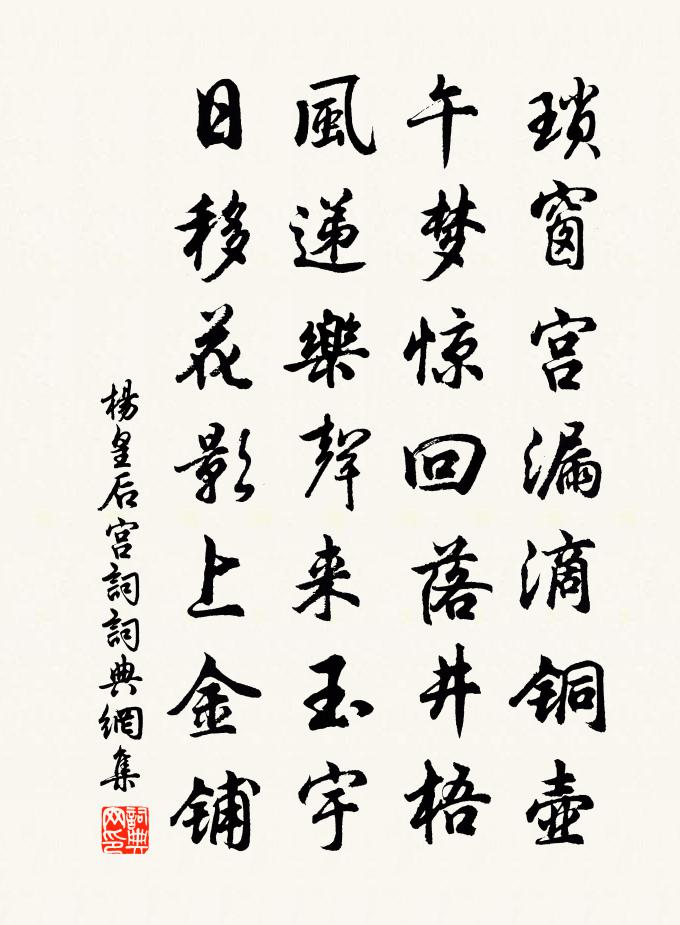 瑣窗宫漏滴铜壶
午梦惊回落井梧
風递樂聲来玉宇
日移花影上金铺
楊皇后宫詞詞典網集
詞典网印